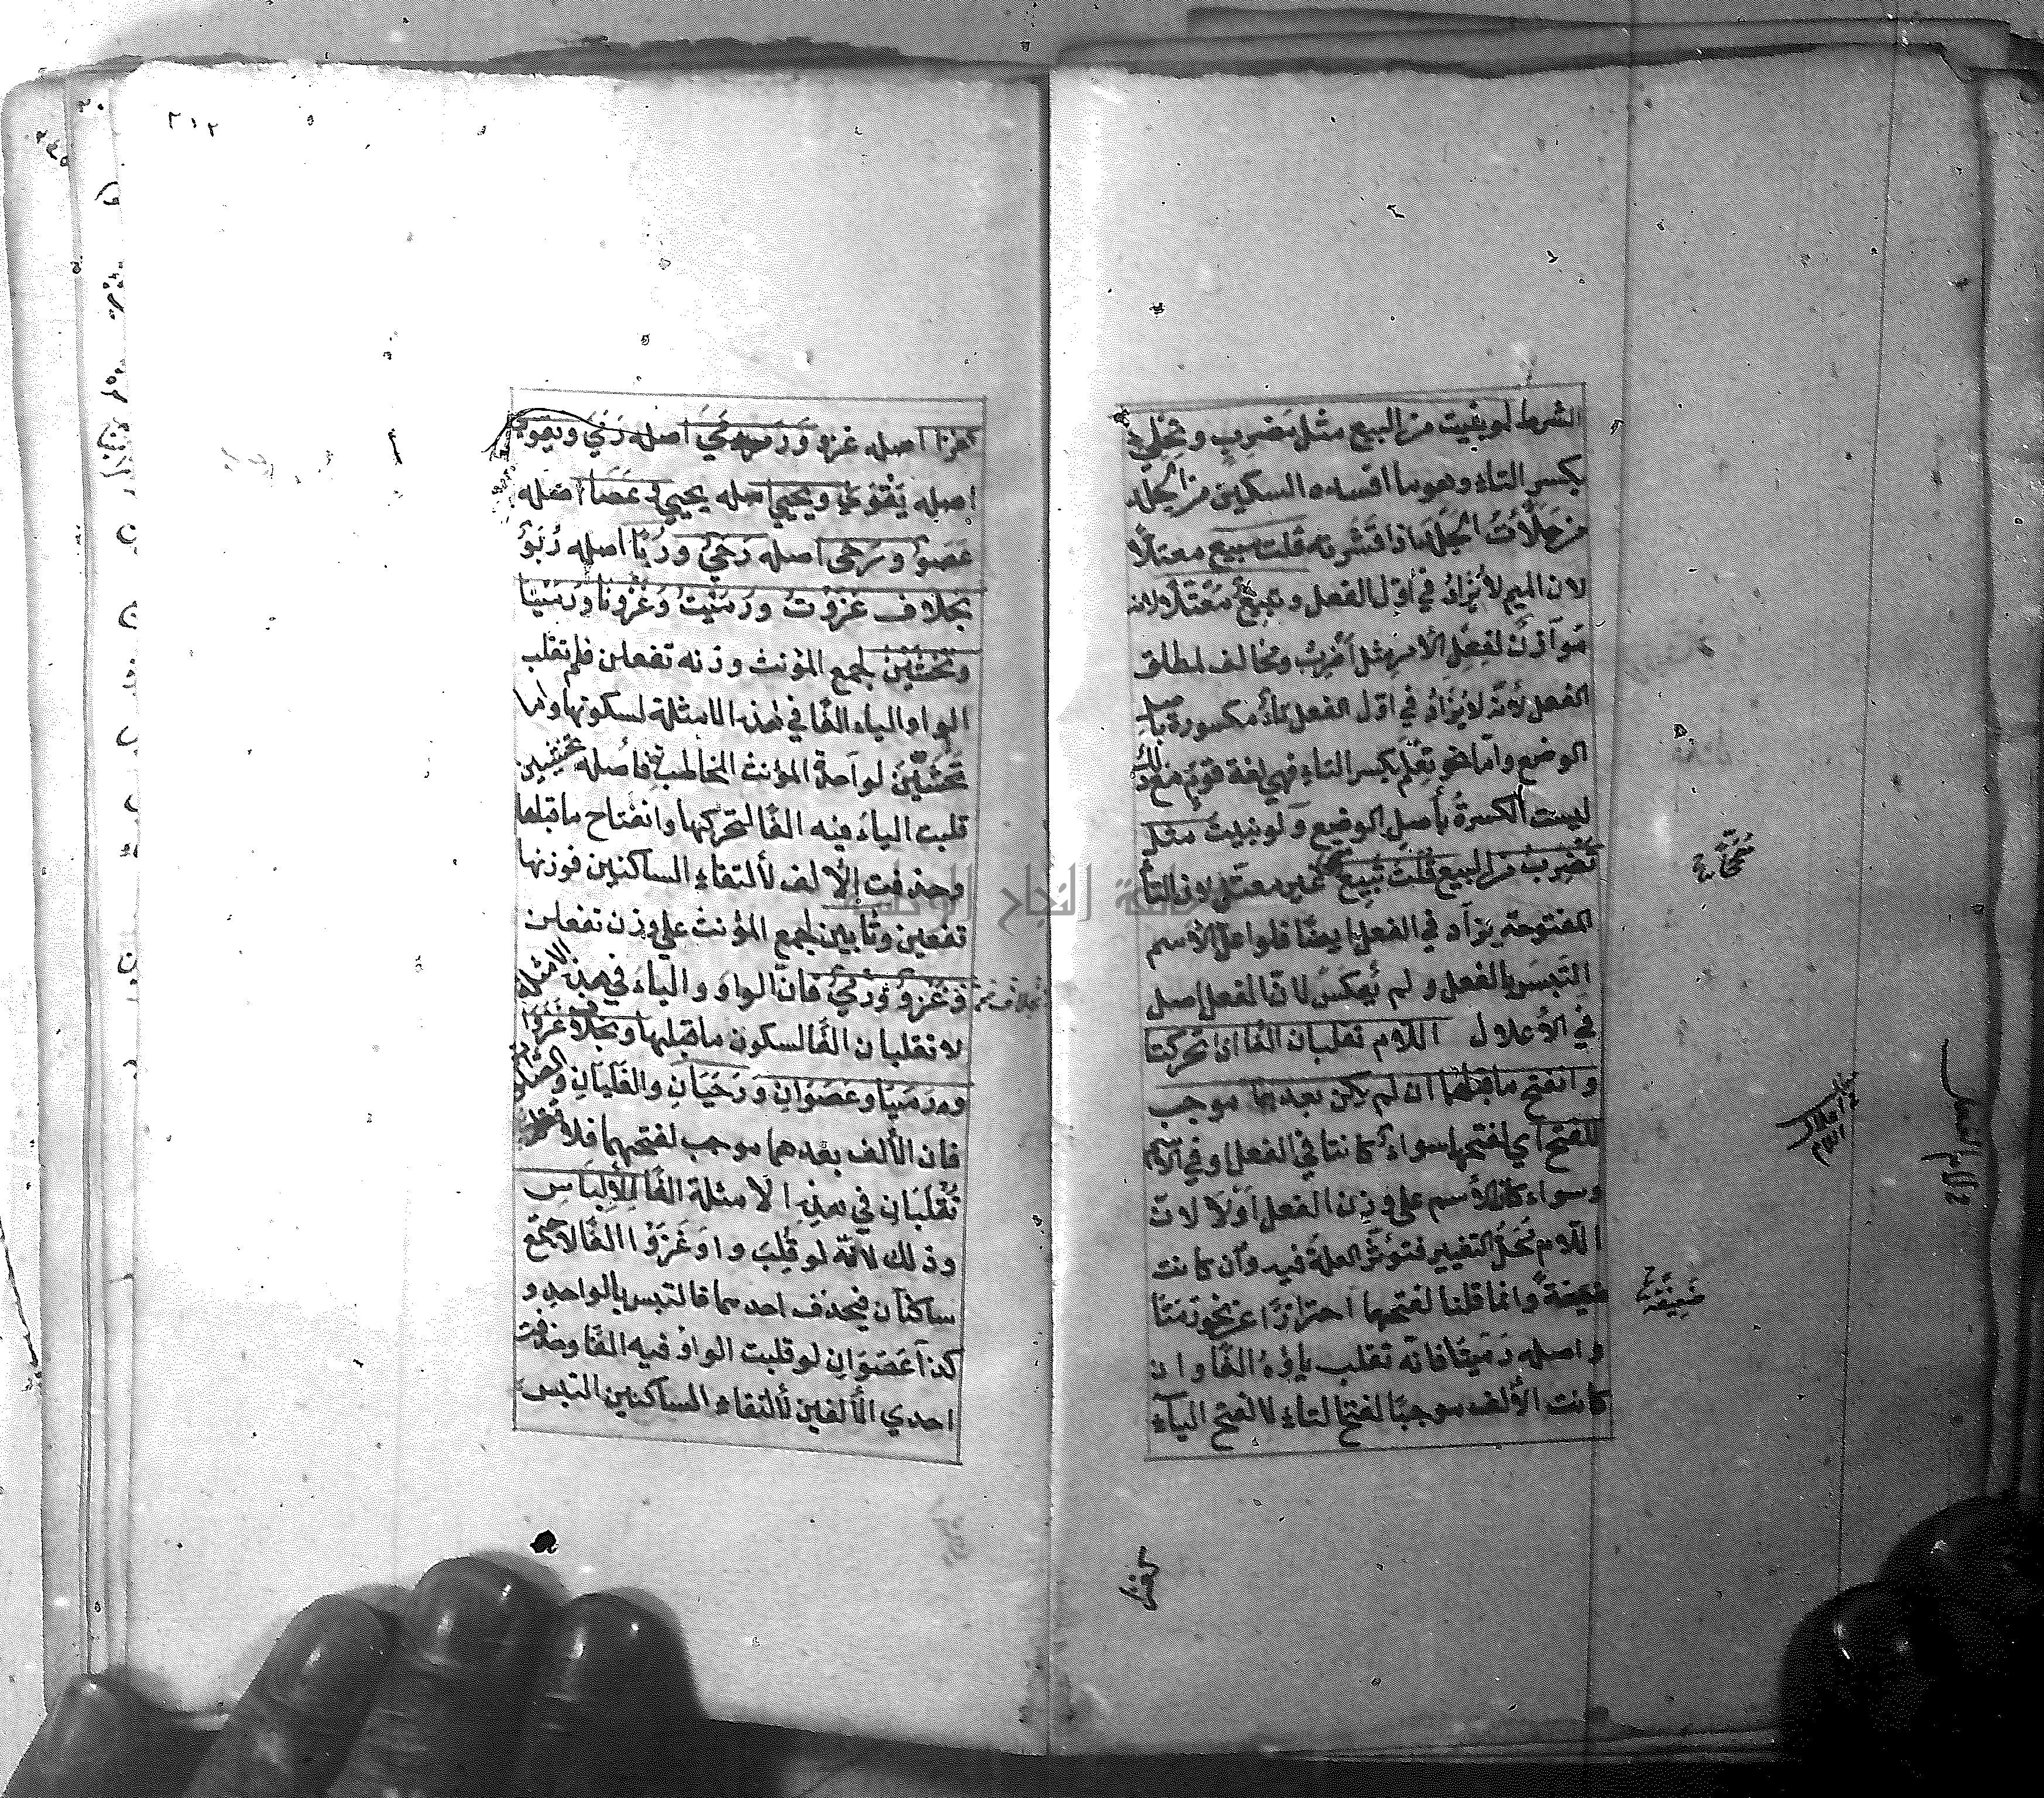 الشرط لو بنيت من البيع مثل مَضرِبٍ وتِحْلِئ
بكسر التاء وهو ما افسده السكين من الجلد
من حَلَأتُ الجلد اذا قشرته قلت مبيع معتلًا
لان الميم لا تُزَادُ في اوّل الفعل وتبيعٌ معتلًا لانه
مَوَازن لفعل الأمر مثل اضرِب ومخالف لمطلق
الفعل لأنّهُ لا يُزَادُ في اوّل الفعل تاءٌ مكسورة باصل
الوضع وامّا نحو تِعْلم بكسر التاء فهي لغة قومٍ مع ذلك
ليست الكسرةُ بأصل الوضع ولو بنيت مثل
تَضْرِبُ من البيع قلت تَبْيِعُ غير معتل لان التاء
المفتوحة يزاد في الفعل ايضًا فلو اعلّ الاسم
التبسَ بالفعل ولم يُعكَس لانّ الفعل اصل
في الأعلال اللام تقلبان الفًا اذا تحركتا
وانفتح ما قبلهما ان لم يكن بعدهما موجب
للفتح اي لفتحهما سواء كانتا في الفعل او في الاسم
وسواء كان الأسم على وزن الفعل اوّلا لانّ
اللّام مَحَلُّ التغيير فتؤثّر العلة فيه وان كانت
ضعيفةً وانما قلنا لفتحهما احترازًا عن نحو رَمَتَا
واصله رَمَيَتَا فانّه تقلب ياؤهُ الفًا وان
كانت الألف موجبًا لفتح التاء لا لفتح الياء
كغزا
٢٠٢
كغزا اصله غزو وَرَمى اصله رَمَيَ ويقوى
اصله يَقْوَي ويحيي اصله يحيي و عَصًا اصله
عَصَوٌ ورَحى اصله رَحَيٌ ورِبًا اصله رِبَوٌ
بخلاف غَزَوْتُ ورَمَيْتُ وَغَزَوْنا ورَمَيْنَا
وتَخْشَيْنَ لجمع المؤنث وزنه تفعلن فلم تقلب
الواو والياء الفًا في هذه الامثلة لسكونها واما
تَخْشَيْنَ لواحدة المؤنث المخاطبة فأصله تخشيين
قلبت الياء فيه الفًا لتحركها وانفتاح ما قبلها
وحذفت الألف لألتقاء الساكنين فوزنها
تفعين وتأبين لجمع المؤنث على وزن تفعلن
بخلاف
فَغَزْوٌ ورَمْيٌ فانّ الواو والياء في هذه الامثلة
لا تقلبان الفًا لسكون ما قبلها وبخلاف غَزَوَا
ورَمَيَا وعَصَوَانِ ورَحَيَانِ والغَلَيَانِ
فان الألف بعدهما موجب لفتحهما فلا
تُقْلبَان في هذه الامثلة الفًا للألبَاسِ
وذلك لأنّهُ لو قُلِبَ واو غَزَوَا الفًا لاجتمع
ساكنان فيحذف احدهما فالتبس بالواحد و
كذا عَصَوَانِ لو قلبت الواو فيه الفًا وحذفت
احدي الألفين لألتقاء الساكنين التبس